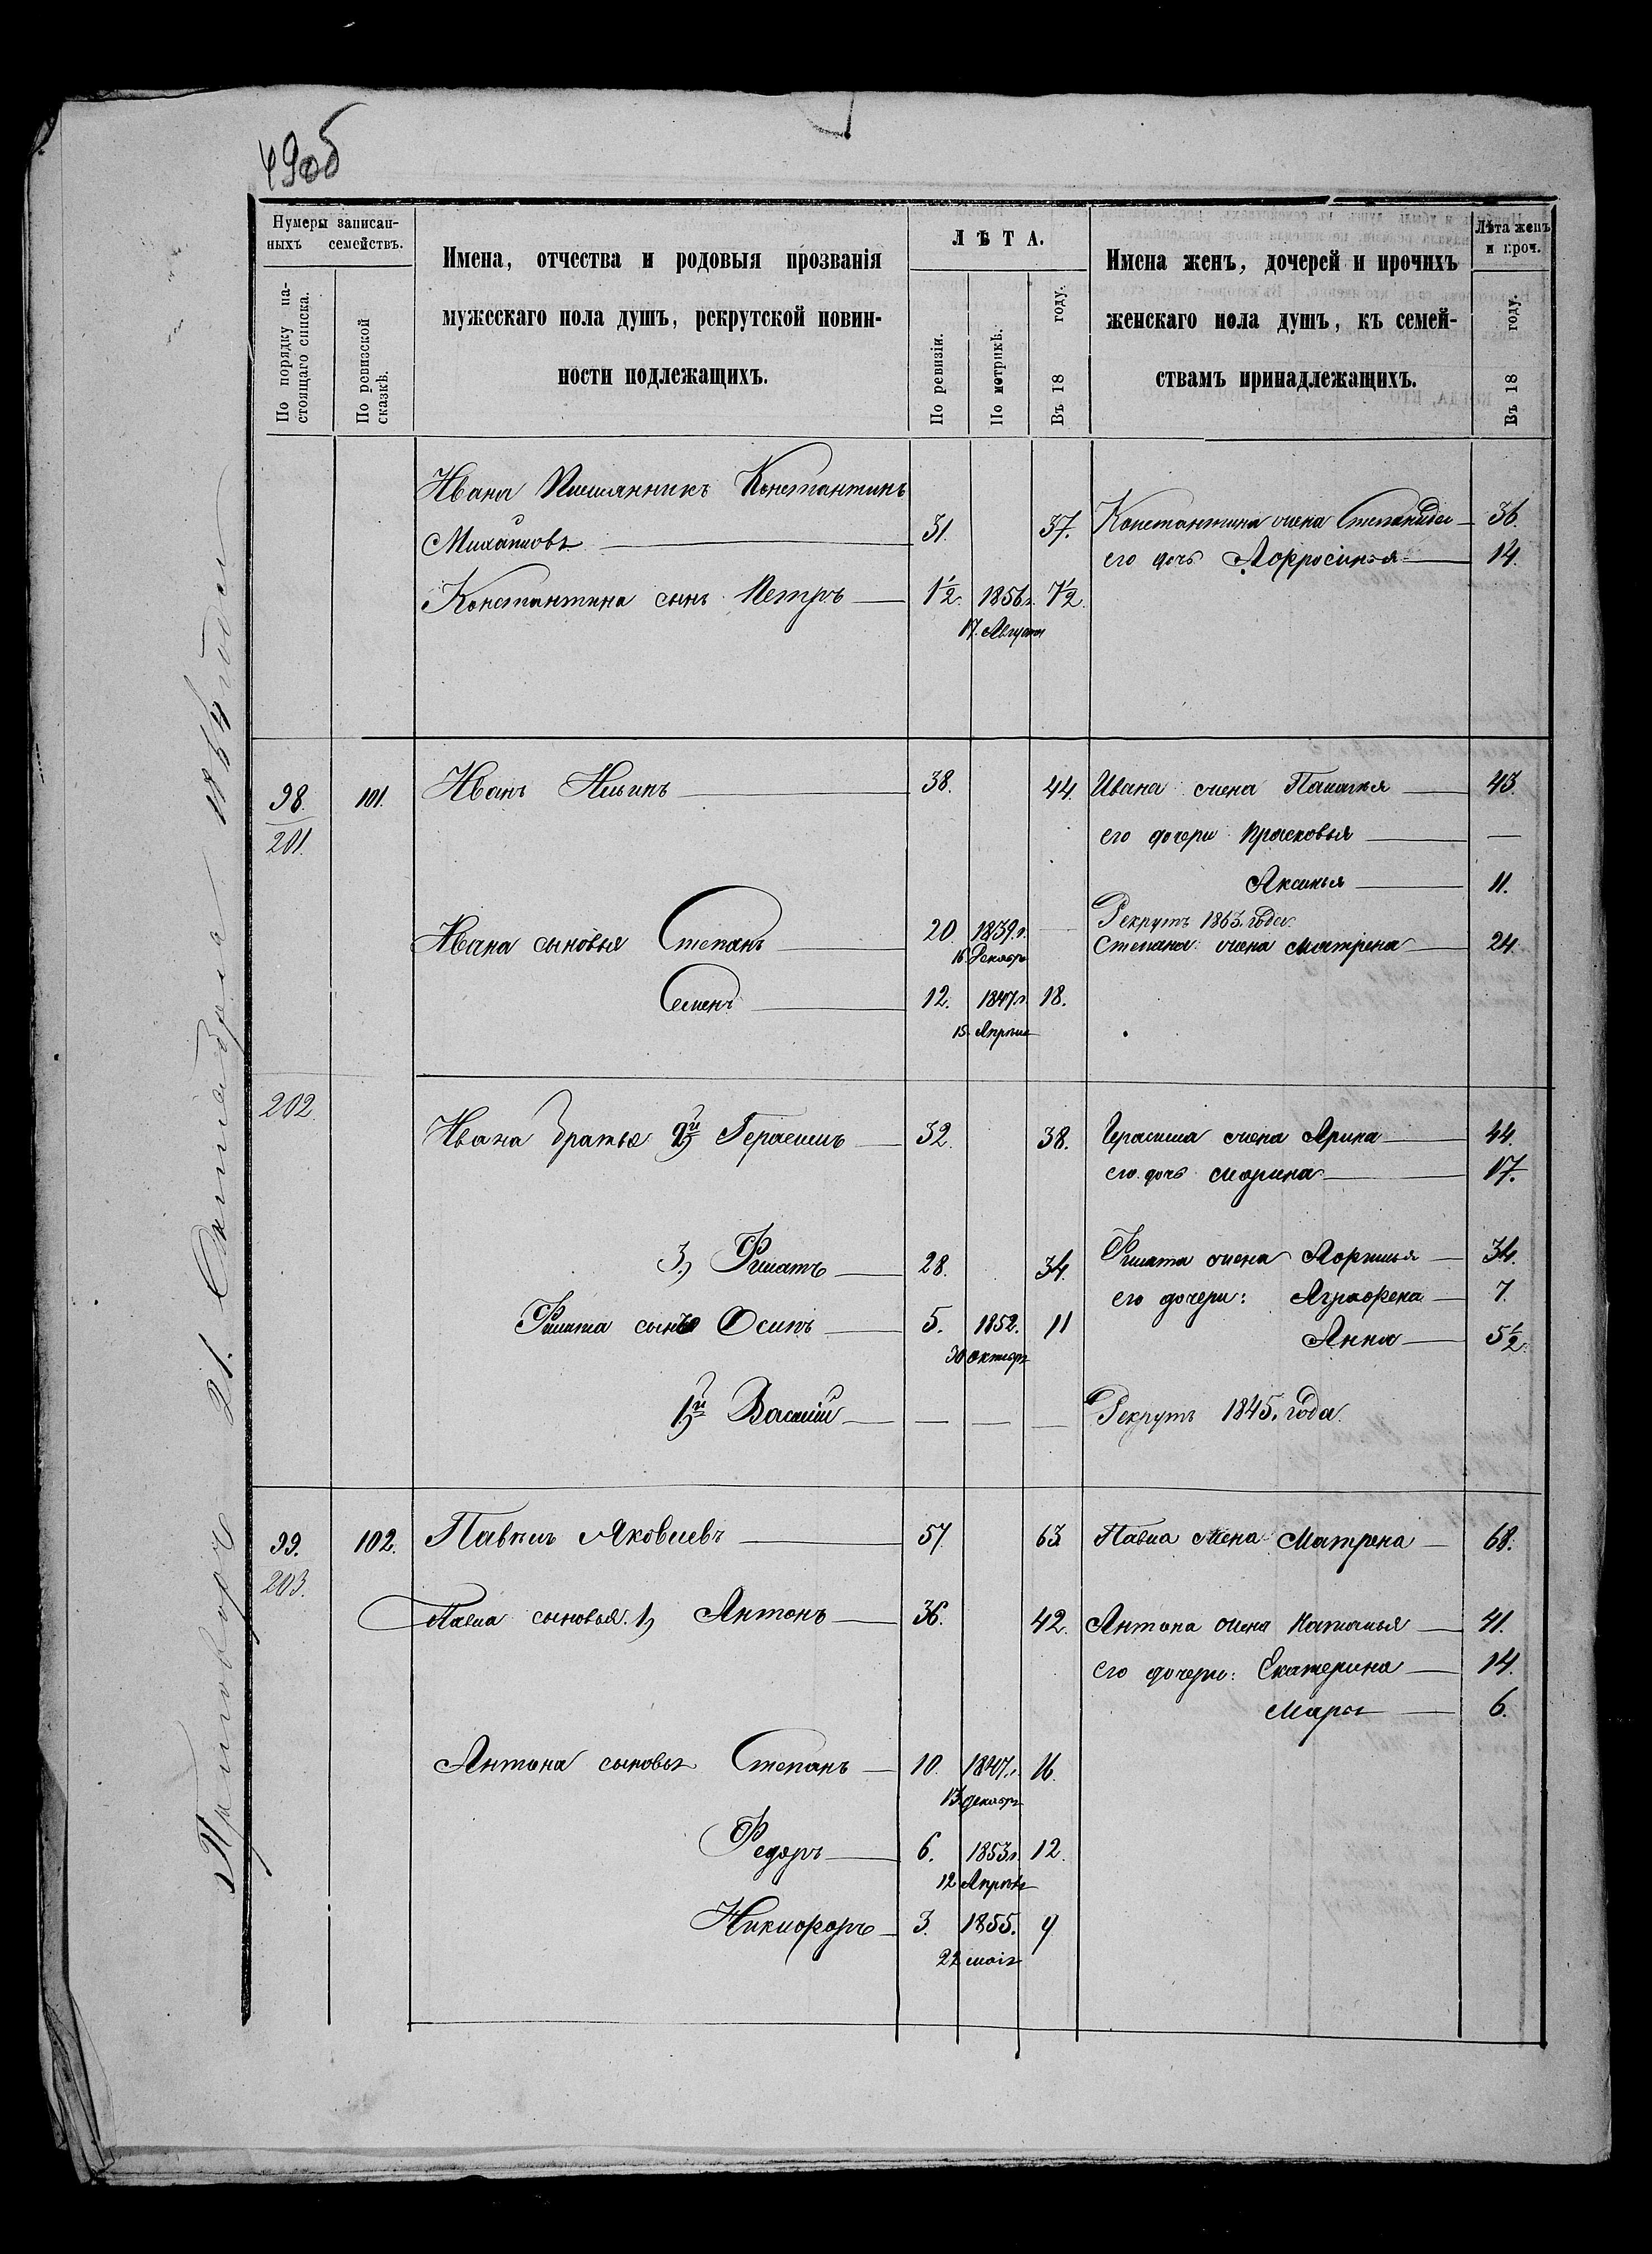 49об
Нумеры записан-
ныхъ семействъ.
По порядку на-
стоящаго списка.
По ревизской
сказкѣ.
Имена, отчества и родовыя прозванія
мужескаго пола душъ, рекрутской повин-
ности подлежащихъ.
Л Ѣ Т А.
По ревизіи.
По метрикѣ.
Въ 18 году.
Имена женъ, дочерей и прочихъ
женскаго пола душъ, къ семей-
ствамъ принадлежащихъ.
Лѣта женъ
и проч.
Въ 18 году.
Ивана Племянникъ Константинъ
Михайловъ 31. 37. Константина жена Степанида 36.
его дочь Афросинья 14.
Константина сынъ Петръ 1½. 1856г. 7½.
17. Августа
98. 101. Иванъ Ильинъ 38. 44. Ивана жена Палагья 43.
201. его дочери Прасковья —
Аксинья 11.
Рекрутъ 1863. года.
Ивана сыновья Степанъ 20. 1839.г. — Степана жена Матрена 24.
16. Декабр
Семенъ 12. 1847.г. 18.
15. Апрѣля
202. Ивана братья 2й Герасимъ 32. 38. Герасима жена Арина 44.
его дочь Марина 17.
3, Филатъ 28. 34. Филата жена Афимья 34.
его дочери: Аграфена 7.
Филата сынъ Осипъ 5. 1852. 11
30 октябр
Анна 5½.
1й Василій — — — Рекрутъ 1845. года.
99. 102. Павелъ Яковлевъ 57 63 Павла жена Матрена 68.
203.
Павла сыновья. 1, Антонъ 36. 42. Антона жена Наталья 41.
его дочери: Екатерина 14.
Марья 6.
Антона сыновья Степанъ 10. 1847.г. 16.
13. декабр
Федоръ 6. 1853г. 12.
12 Апрѣля
Никифоръ 3. 1855. 9
22 маія
Приговоръ 21. Октября 1864 года